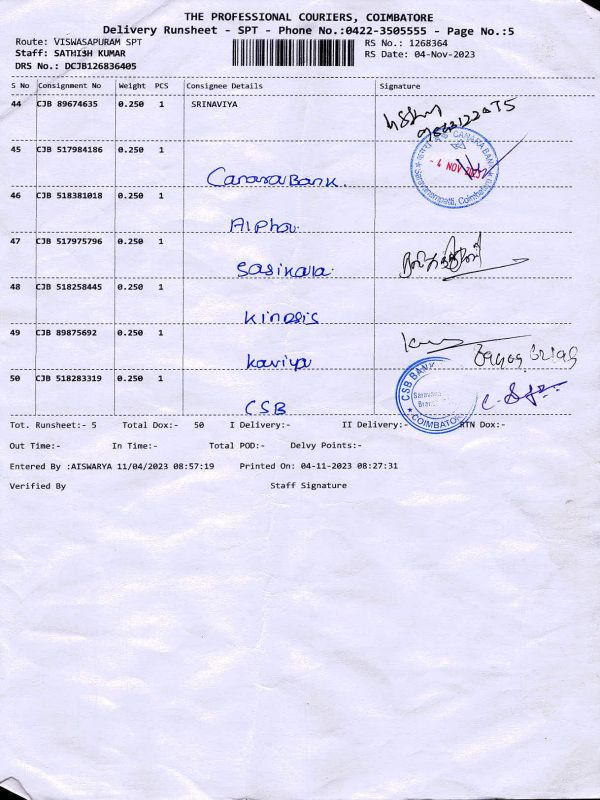 THE PROFESSIONAL COURIERS, COIMBATORE
Delivery Runsheet - SPT - Phone No.:0422-3505555 - Page No.:5
Route: VISWASAPURAM SPT
RS No.: 1268364
Staff: SATHISH KUMAR
RS Date: 04-Nov-2023
DRS No.: DCJB126836405
S No Consignment No Weight PCS Consignee Details Signature
44 CJB 89674635 0.250 1 SRINAVIYA
45 CJB 517984186 0.250 1
Canara Bank.
CANARA BANK
- 4 NOV 2023
Saravanampatti, Coimbatore
46 CJB 518381018 0.250 1
Alpha
47 CJB 517975796 0.250 1
Sasikala
48 CJB 518258445 0.250 1
Kinesis
49 CJB 89875692 0.250 1
Kaviya
50 CJB 518283319 0.250 1
CSB
CSB BANK
COIMBATORE
Tot. Runsheet:- 5 Total Dox:- 50 I Delivery:- II Delivery:- RTN Dox:-
Out Time:- In Time:- Total POD:- Delvy Points:-
Entered By :AISWARYA 11/04/2023 08:57:19 Printed On: 04-11-2023 08:27:31
Verified By Staff Signature